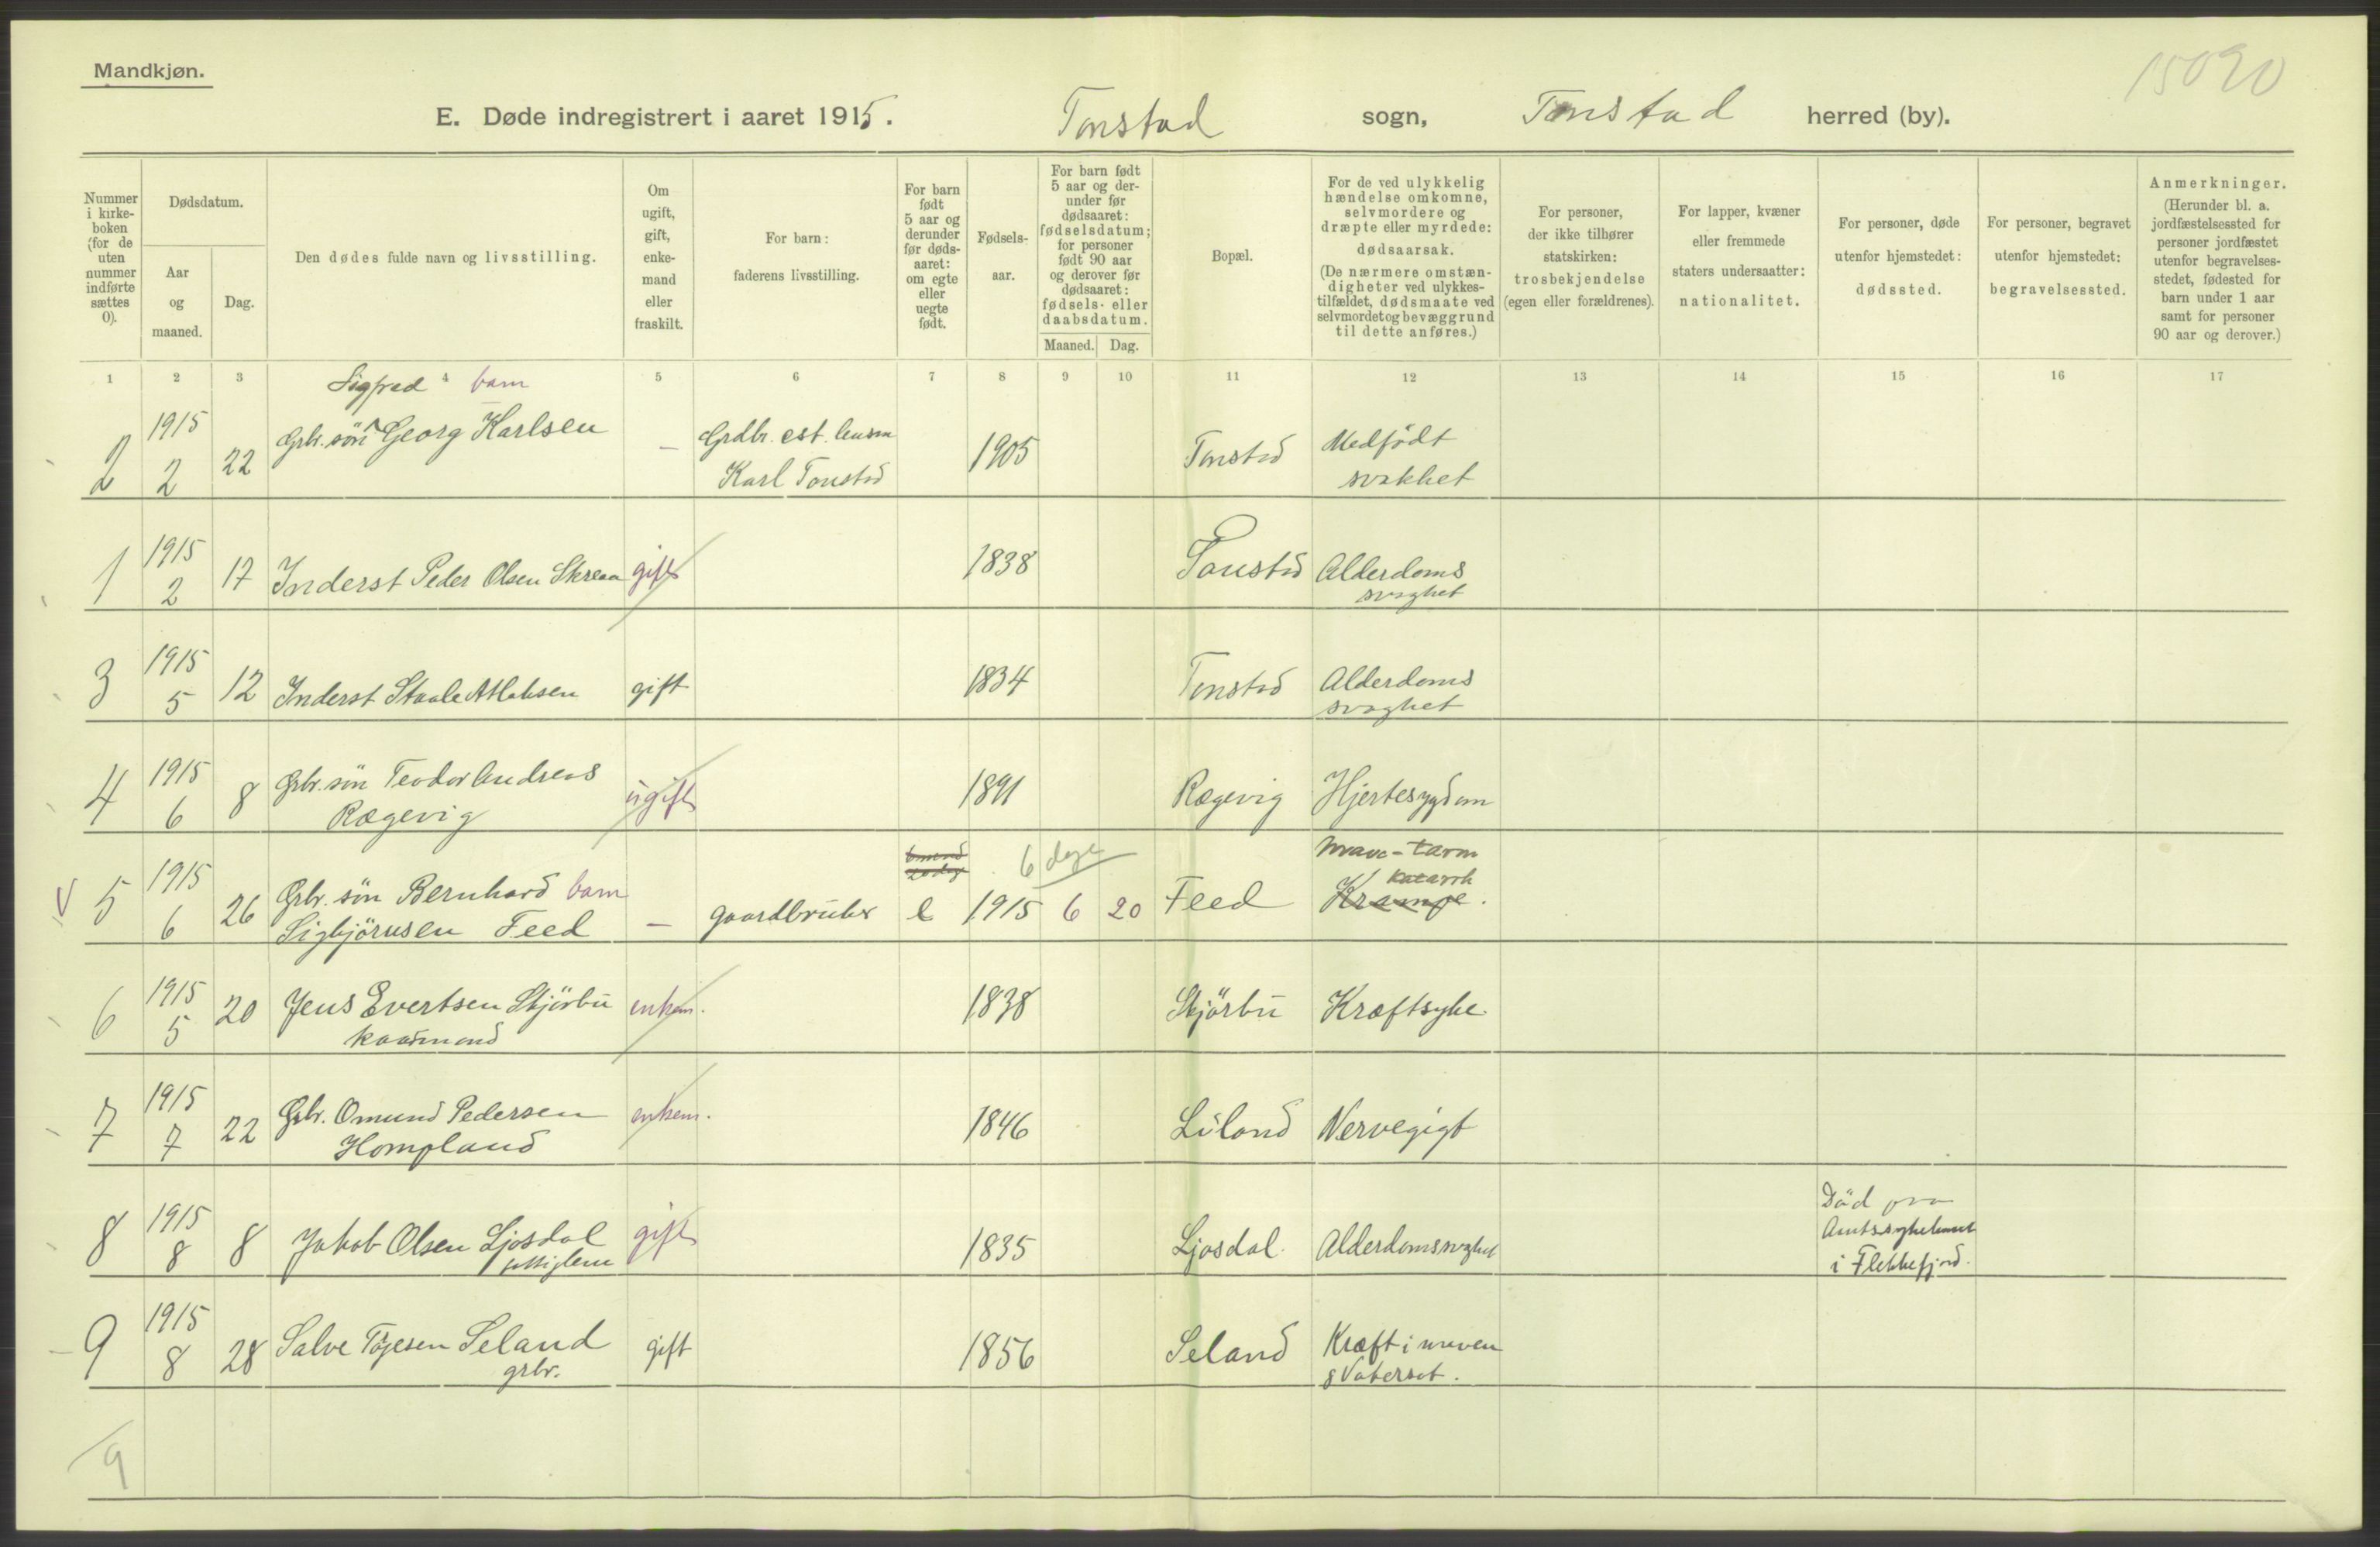 Mandkjøn.
15090
E. Døde indregistrert i aaret 1915. Tonstad sogn, Tonstad herred (by).
Nummer i kirke- boken (for de uten nummer indførte sættes 0).
Dødsdatum.
Aar og maaned.
Dag.
Den dødes fulde navn og livsstilling.
Om ugift, gift, enke- mand eller fraskilt.
For barn: faderens livsstilling.
For barn født 5 aar og derunder før døds- aaret: om egte eller uegte født.
Fødsels- aar.
For barn født 5 aar og der- under før dødsaaret: fødselsdatum; for personer født 90 aar og derover før dødsaaret: fødsels- eller daabsdatum.
Maaned. Dag.
Bopæl.
For de ved ulykkelig hændelse omkomne, selvmordere og dræpte eller myrdede: dødsaarsak. (De nærmere omstæn- digheter ved ulykkes- tilfældet, dødsmaate ved selvmordet og bevæggrund til dette anføres.)
For personer, der ikke tilhører statskirken: trosbekjendelse (egen eller forældrenes).
For lapper, kvæner eller fremmede staters undersaatter: nationalitet.
For personer, døde utenfor hjemstedet: dødssted.
For personer, begravet utenfor hjemstedet: begravelsessted.
Anmerkninger. (Herunder bl. a. jordfæstelsessted for personer jordfæstet utenfor begravelses- stedet, fødested for barn under 1 aar samt for personer 90 aar og derover.)
1 2 3 4 5 6 7 8 9 10 11 12 13 14 15 16 17
Sigfred barn
2 1915 2 22 Grbr. søn Georg Karlsen — Grdbr. Karl Tonstad 1905 Tonstad Medfødt svakhet
1 1915 2 17 Inderst Peder Olsen Skreaa gift 1838 Tonstad Alderdoms svaghet
3 1915 5 12 Inderst Staale Atlaksen gift 1834 Tonstad Alderdoms svaghet
4 1915 6 8 Grbr. søn Teodor Andreas Rægevig ugift 1891 Rægevig Hjertesygdom
5 1915 6 26 Grbr. søn Bernhard barn Sigbjørnsen Feed — gaardbruker e 6 dage 1915 6 20 Feed Mave-tarm katarrh Krampe.
6 1915 5 20 Jens Evertsen Skjörbu kaarmand enkem. 1838 Skjörbu Kræftsyke
7 1915 7 22 Grbr. Omund Pedersen Hompland enkem. 1846 Liland Nervegigt
8 1915 8 8 Jakob Olsen Ljosdal gift 1835 Ljosdal Alderdomssvaghet Död paa Amtssykehuset i Flekkefjord.
9 1915 8 28 Salve Tøgesen Seland grbr. gift 1856 Seland Kræft i maven
9